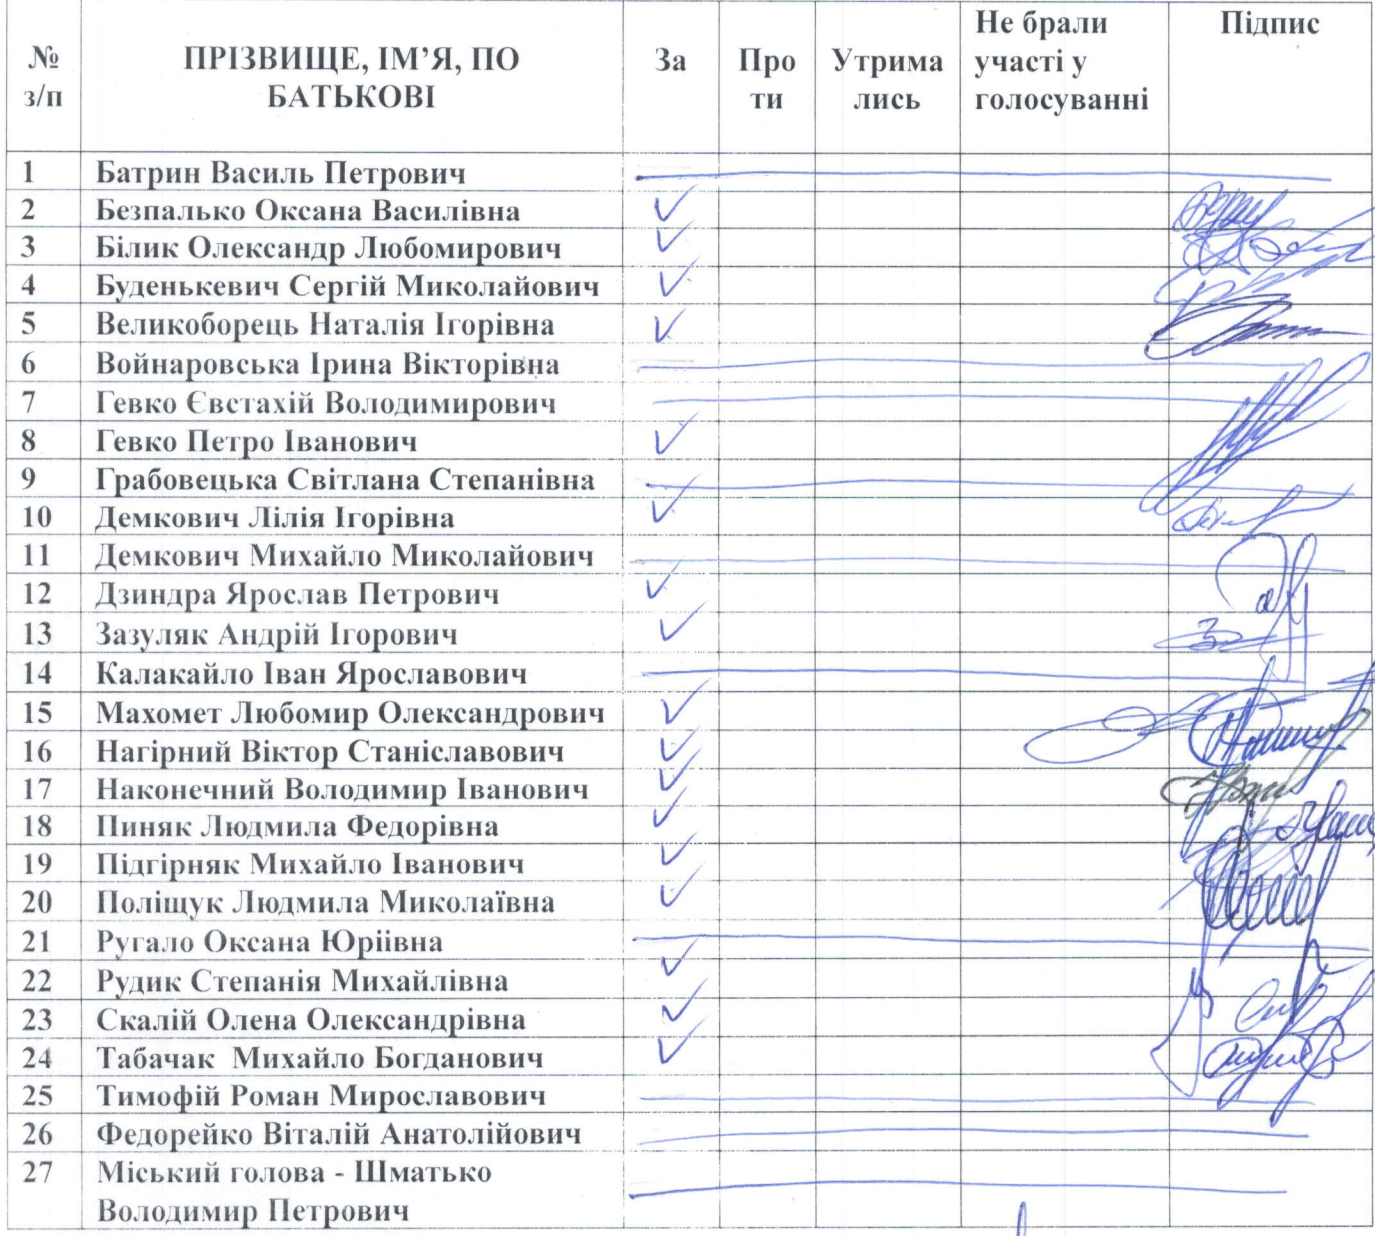 № з/п
ПРІЗВИЩЕ, ІМ’Я, ПО БАТЬКОВІ
За
Про ти
Утрима лись
Не брали участі у голосуванні
Підпис
1 Батрин Василь Петрович
2 Безпалько Оксана Василівна
3 Білик Олександр Любомирович
4 Буденькевич Сергій Миколайович
5 Великоборець Наталія Ігорівна
6 Войнаровська Ірина Вікторівна
7 Гевко Євстахій Володимирович
8 Гевко Петро Іванович
9 Грабовецька Світлана Степанівна
10 Демкович Лілія Ігорівна
11 Демкович Михайло Миколайович
12 Дзиндра Ярослав Петрович
13 Зазуляк Андрій Ігорович
14 Калакайло Іван Ярославович
15 Махомет Любомир Олександрович
16 Нагірний Віктор Станіславович
17 Наконечний Володимир Іванович
18 Пиняк Людмила Федорівна
19 Підгірняк Михайло Іванович
20 Поліщук Людмила Миколаївна
21 Ругало Оксана Юріівна
22 Рудик Степанія Михайлівна
23 Скалій Олена Олександрівна
24 Табачак Михайло Богданович
25 Тимофій Роман Мирославович
26 Федорейко Віталій Анатолійович
27 Міський голова - Шматько
Володимир Петрович